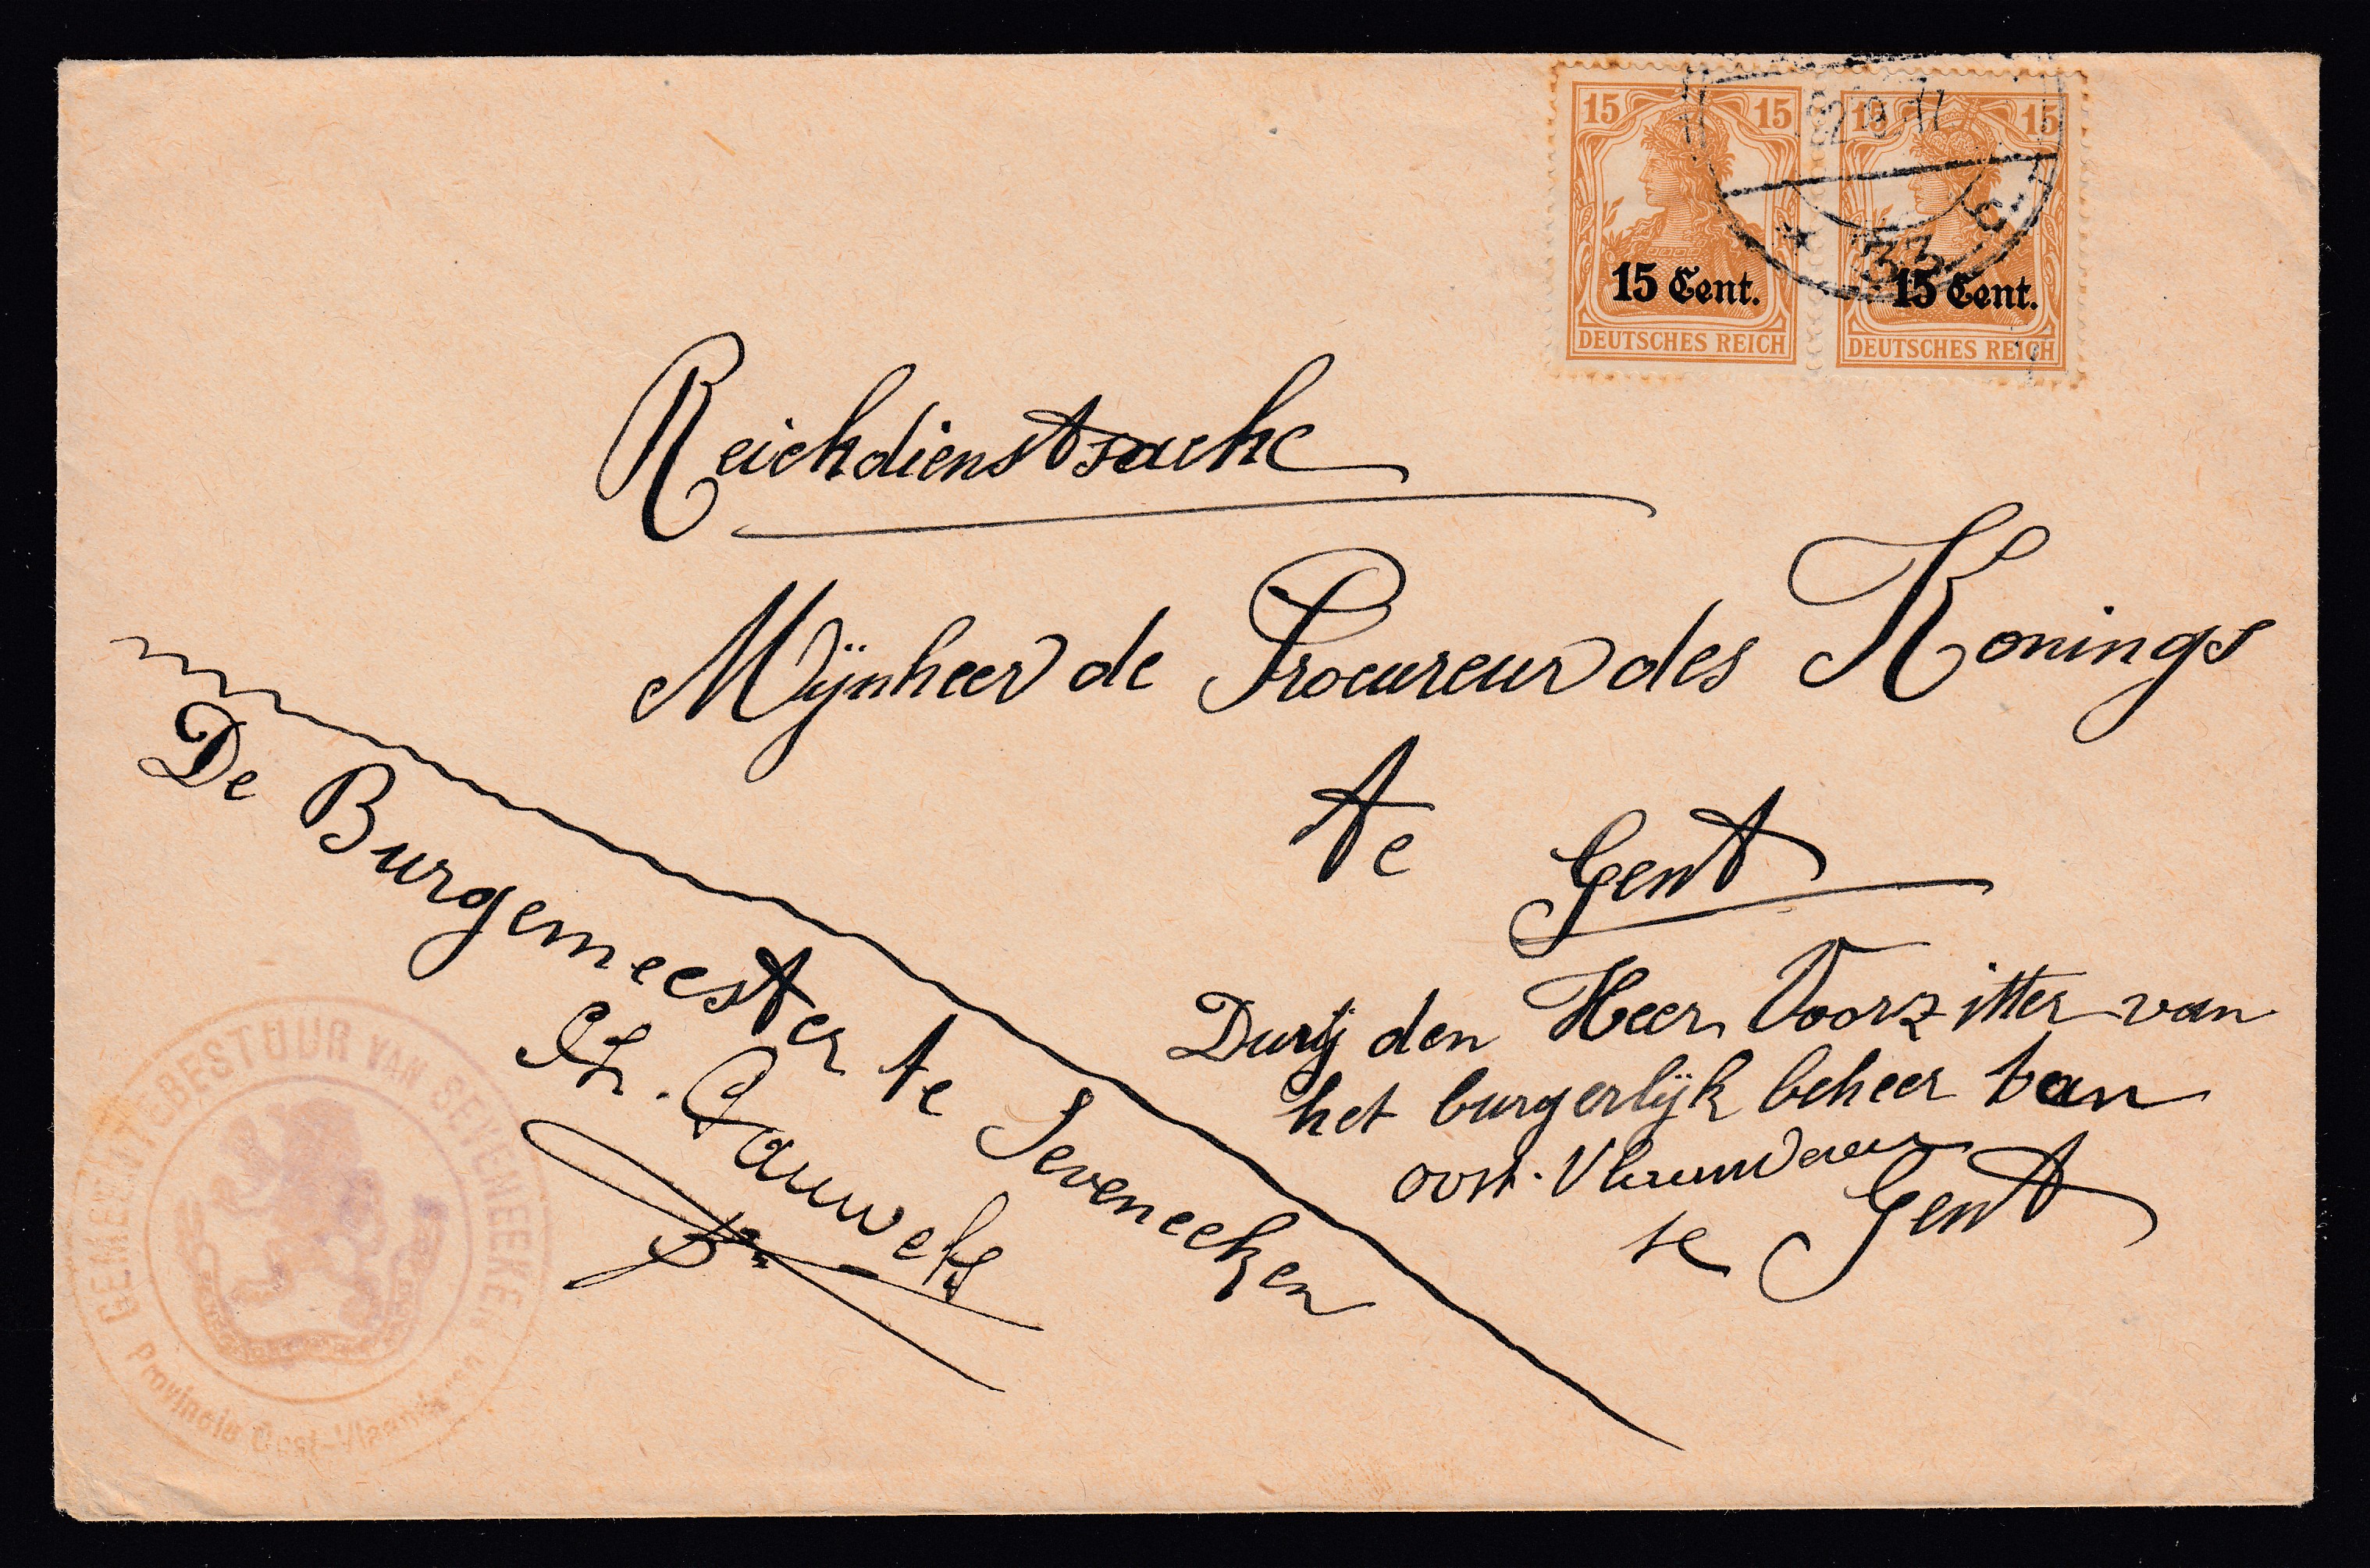 15 15
15 Cent.
DEUTSCHES REICH
15 15
15 Cent.
DEUTSCHES REICH
Reichdienstsache
Mijnheer de Procureur des Konings
te Gent
De Burgemeester te Seveneeken
Pauwels
den Heer Voorzitter van
het burgerlijk beheer van
Oost-Vlaanderen
te Gent
GEMEENTEBESTUUR VAN SEVENEEKEN
Provincie Oost-Vlaanderen